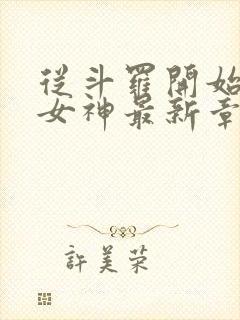 從斗羅開始
女神最新章
許美榮